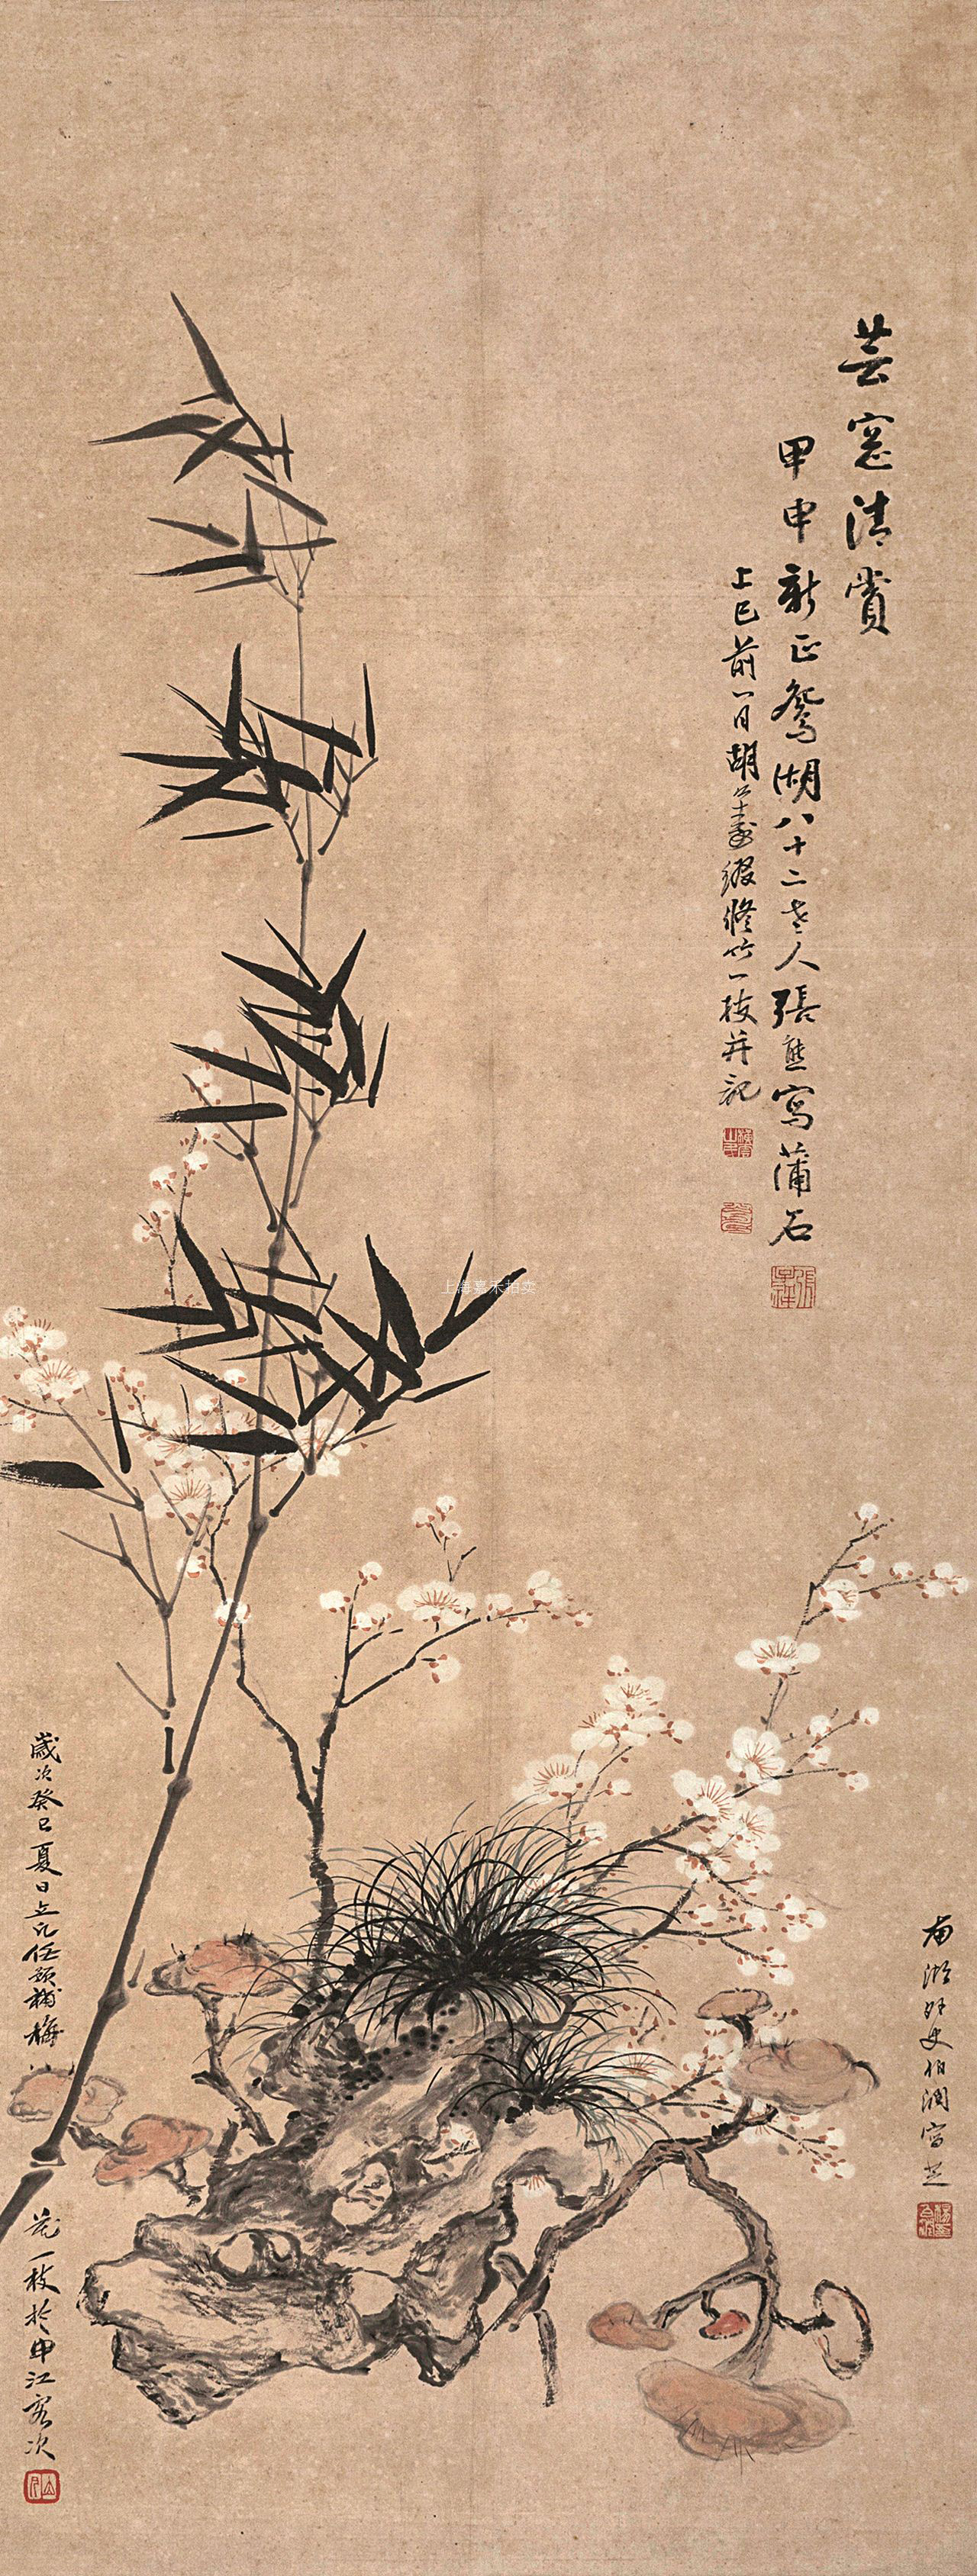 芸窓清賞
甲申新正鴛湖八十二老人張熊寫蒲石
上巳前一日胡公壽綴修竹一枝并記
南湖外史伯潤寫芝
歲次癸巳夏日立凡任預補梅
花一枝於申江客次
上海嘉禾拍卖